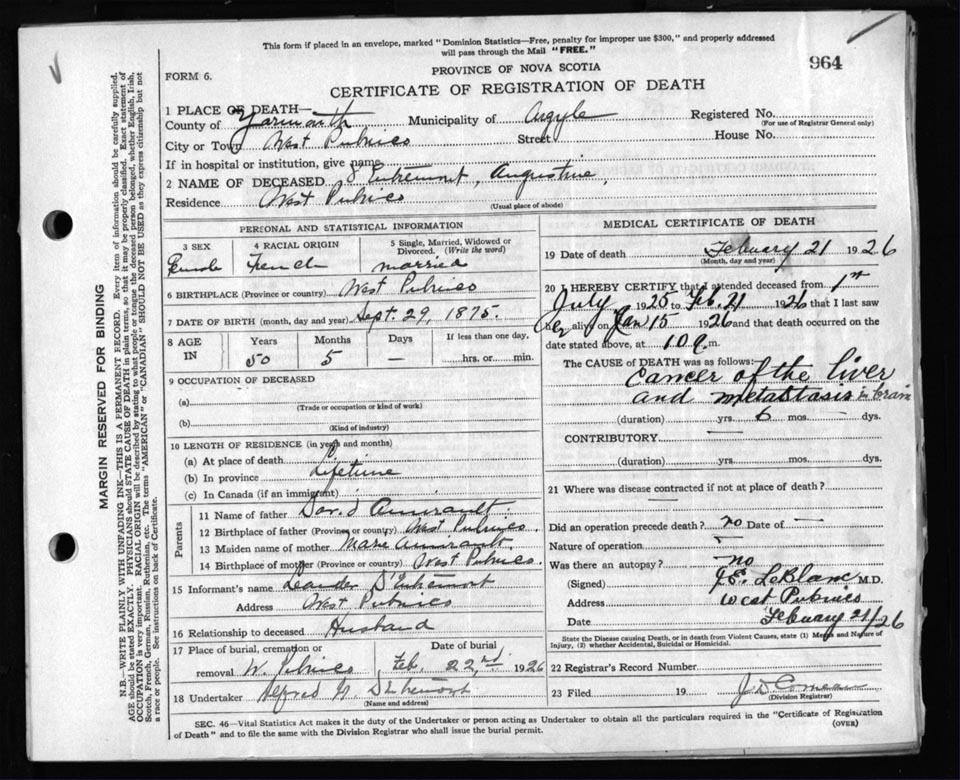 This form if placed in an envelope, marked "Dominion Statistics—Free, penalty for improper use $300," and properly addressed
will pass through the Mail "FREE."
964
FORM 6.
PROVINCE OF NOVA SCOTIA
CERTIFICATE OF REGISTRATION OF DEATH
1 PLACE OF DEATH—
County of Yarmouth Municipality of Argyle Registered No.
(For use of Registrar General only)
City or Town West Pubnico Street House No.
If in hospital or institution, give name
2 NAME OF DECEASED D'Entremont, Augustine,
Residence West Pubnico
(Usual place of abode)
PERSONAL AND STATISTICAL INFORMATION
3 SEX 4 RACIAL ORIGIN 5 Single, Married, Widowed or Divorced. (Write the word)
Female French married
6 BIRTHPLACE (Province or country) West Pubnico
7 DATE OF BIRTH (month, day and year) Sept. 29, 1875.
8 AGE IN Years Months Days If less than one day,
50 5 — hrs. or min.
9 OCCUPATION OF DECEASED
(a)
(Trade or occupation or kind of work)
(b)
(Kind of industry)
10 LENGTH OF RESIDENCE (in years and months)
(a) At place of death
(b) In province Lifetime
(c) In Canada (if an immigrant)
Parents
11 Name of father David Amirault.
12 Birthplace of father (Province or country) West Pubnico.
13 Maiden name of mother Marie Amirault.
14 Birthplace of mother (Province or country) West Pubnico.
15 Informant's name Leander D'Entremont
Address West Pubnico
16 Relationship to deceased Husband
17 Place of burial, cremation or removal Date of burial
W. Pubnico Feb. 22nd 1926
18 Undertaker Alfred D'Entremont
(Name and address)
MEDICAL CERTIFICATE OF DEATH
19 Date of death February 21 1926
(Month, day and year)
20 I HEREBY CERTIFY that I attended deceased from 1st
July 1925 to Feb. 21 1926 that I last saw
her alive on Jan 15 1926 and that death occurred on
date stated above, at 10 a m.
The CAUSE OF DEATH was as follows:
Cancer of the liver
and metastasis in brain
(duration) yrs. 6 mos. — dys.
CONTRIBUTORY —
(duration) yrs. mos. dys.
21 Where was disease contracted if not at place of death?
Did an operation precede death? no Date of —
Nature of operation —
Was there an autopsy? no
(Signed) LeBlanc M.D.
Address West Pubnico
Date February 21/26
State the Disease causing Death, or in death from Violent Causes, state (1) Means and Nature of
Injury, (2) whether Accidental, Suicidal or Homicidal.
22 Registrar's Record Number
23 Filed 19 J. D. Comeau
(Division Registrar)
SEC. 46—Vital Statistics Act makes it the duty of the Undertaker or person acting as Undertaker to obtain all the particulars required in the "Certificate of Registration
of Death" and to file the same with the Division Registrar who shall issue the burial permit.
(OVER)
MARGIN RESERVED FOR BINDING
N.B.—WRITE PLAINLY WITH UNFADING INK—THIS IS A PERMANENT RECORD. Every item of information should be carefully supplied.
AGE should be stated EXACTLY. PHYSICIANS should STATE CAUSE OF DEATH in plain terms, so that it may be properly classified. Exact statement of
OCCUPATION is very important. RACIAL ORIGIN will be described by stating to what people or tongue the deceased person belonged, whether English, Irish,
Scotch, French, German, Russian, Ruthenian, etc. The terms "AMERICAN" or "CANADIAN" SHOULD NOT BE USED as they express citizenship but not
a race or people. See instructions on back of Certificate.